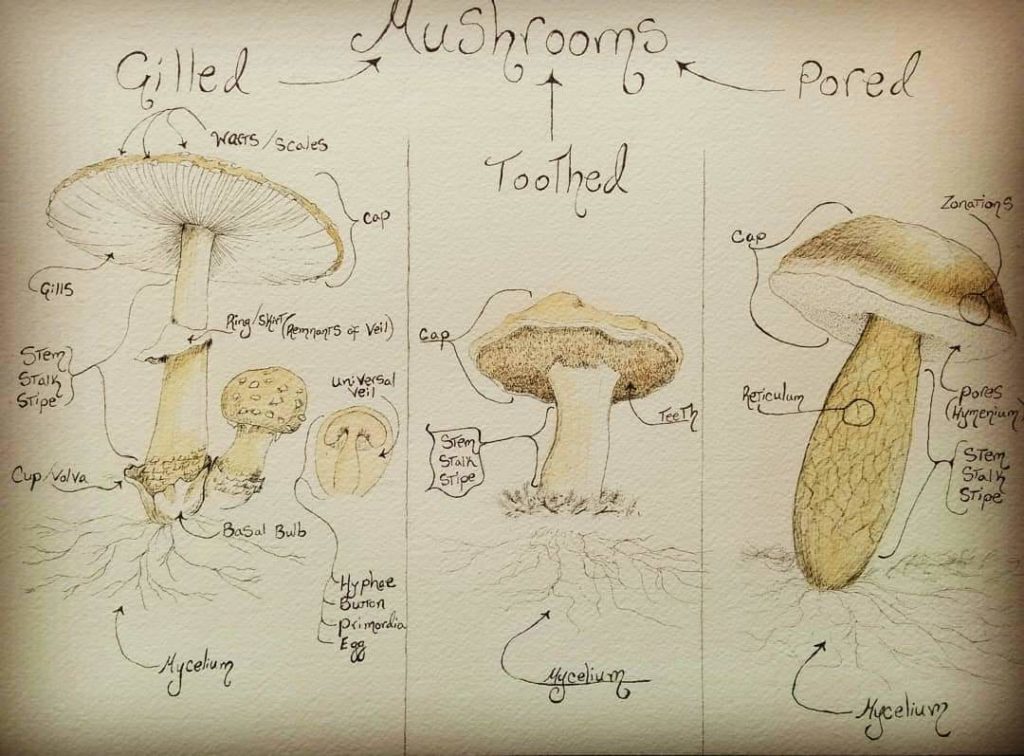 Mushrooms
Gilled
Pored
Toothed
Warts/Scales
Cap
Gills
Ring/Skirt (Remnants of Veil)
Stem
Stalk
Stipe
universal
veil
Cup/Volva
Basal Bulb
Hyphae
Button
Primordia
Egg
Mycelium
Cap
Teeth
Stem
Stalk
Stipe
Mycelium
Zonations
Cap
Reticulum
Pores
(Hymenium)
Stem
Stalk
Stipe
Mycelium